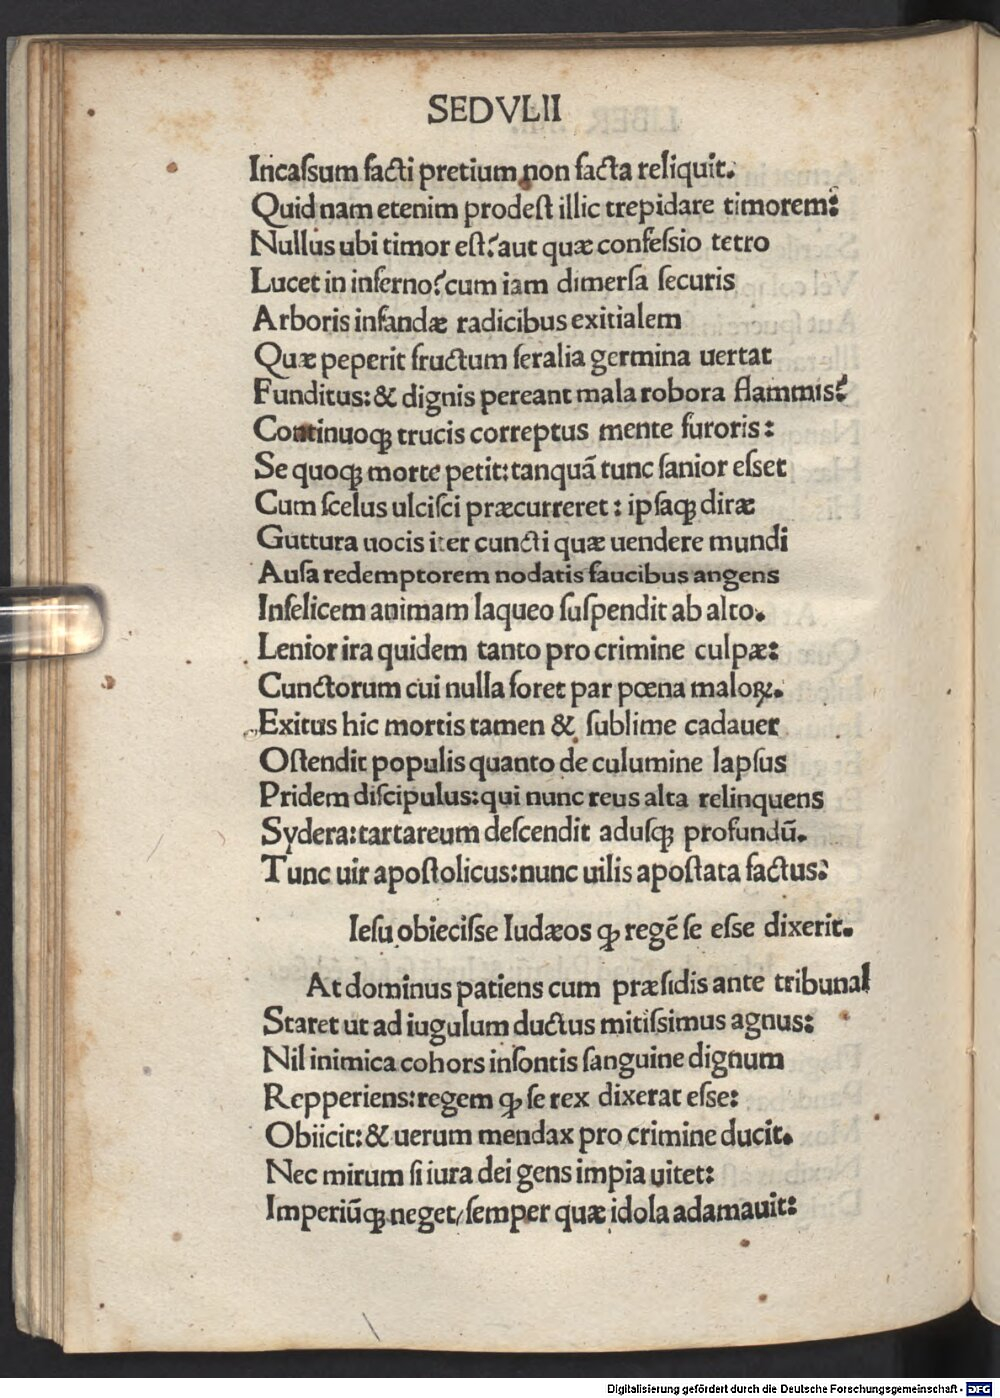 SEDVLII
Incaſſum facti pretium non facta reliquit.
Quid nam etenim prodeſt illic trepidare timorem:
Nullus ubi timor eſt? aut quæ confeſſio tetro
Lucet in inferno? cum iam dimerſa ſecuris
Arboris infandæ radicibus exitialem
Quæ peperit fructum feralia germina uertat
Funditus: & dignis pereant mala robora flammis?
Continuoqꝫ trucis correptus mente furoris:
Se quoqꝫ morte petit: tanquã tunc ſanior eſſet
Cum ſcelus ulciſci præcurreret: ipſaqꝫ diræ
Guttura uocis iter cuncti quæ uendere mundi
Auſa redemptorem nodatis faucibus angens
Infelicem animam laqueo ſuſpendit ab alto.
Lenior ira quidem tanto pro crimine culpæ:
Cunctorum cui nulla foret par pœna maloꝝ.
Exitus hic mortis tamen & ſublime cadauer
Oſtendit populis quanto de culumine lapſus
Pridem diſcipulus: qui nunc reus alta relinquens
Sydera: tartareum deſcendit aduſqꝫ profundũ.
Tunc uir apoſtolicus: nunc uilis apoſtata factus:
Ieſu obieciſſe Iudæos ꝙ regẽ ſe eſſe dixerit.
At dominus patiens cum præſidis ante tribunal
Staret ut ad iugulum ductus mitiſſimus agnus:
Nil inimica cohors inſontis ſanguine dignum
Repperiens: regem ꝙ ſe rex dixerat eſſe:
Obiicit: & uerum mendax pro crimine ducit.
Nec mirum ſi iura dei gens impia uitet:
Imperiũqꝫ neget/ ſemper quæ idola adamauit:
Digitalisierung gefördert durch die Deutsche Forschungsgemeinschaft - DFG